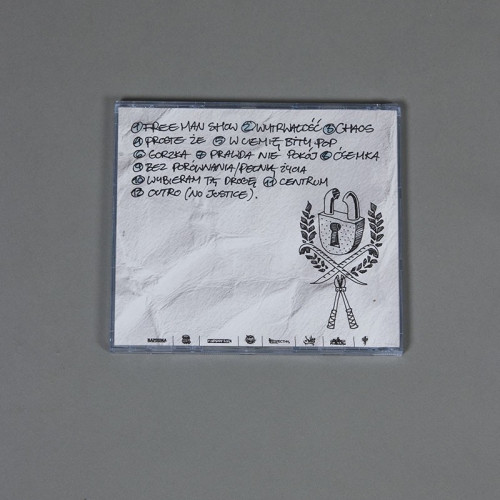 1 FREE MAN SHOW 2 WYTRWAŁOŚĆ 3 CHAOS
4 PROSTE ŻE 5 W CIEMIĘ BITY POP
6 GORZKA 7 PRAWDA NIE POKÓJ 8 ÓSEMKA
9 BEZ PORÓWNANIA/PEŁNIĄ ŻYCIA
10 WYBIERAM TĄ DROGĘ 11 CENTRUM
12 OUTRO (NO JUSTICE).